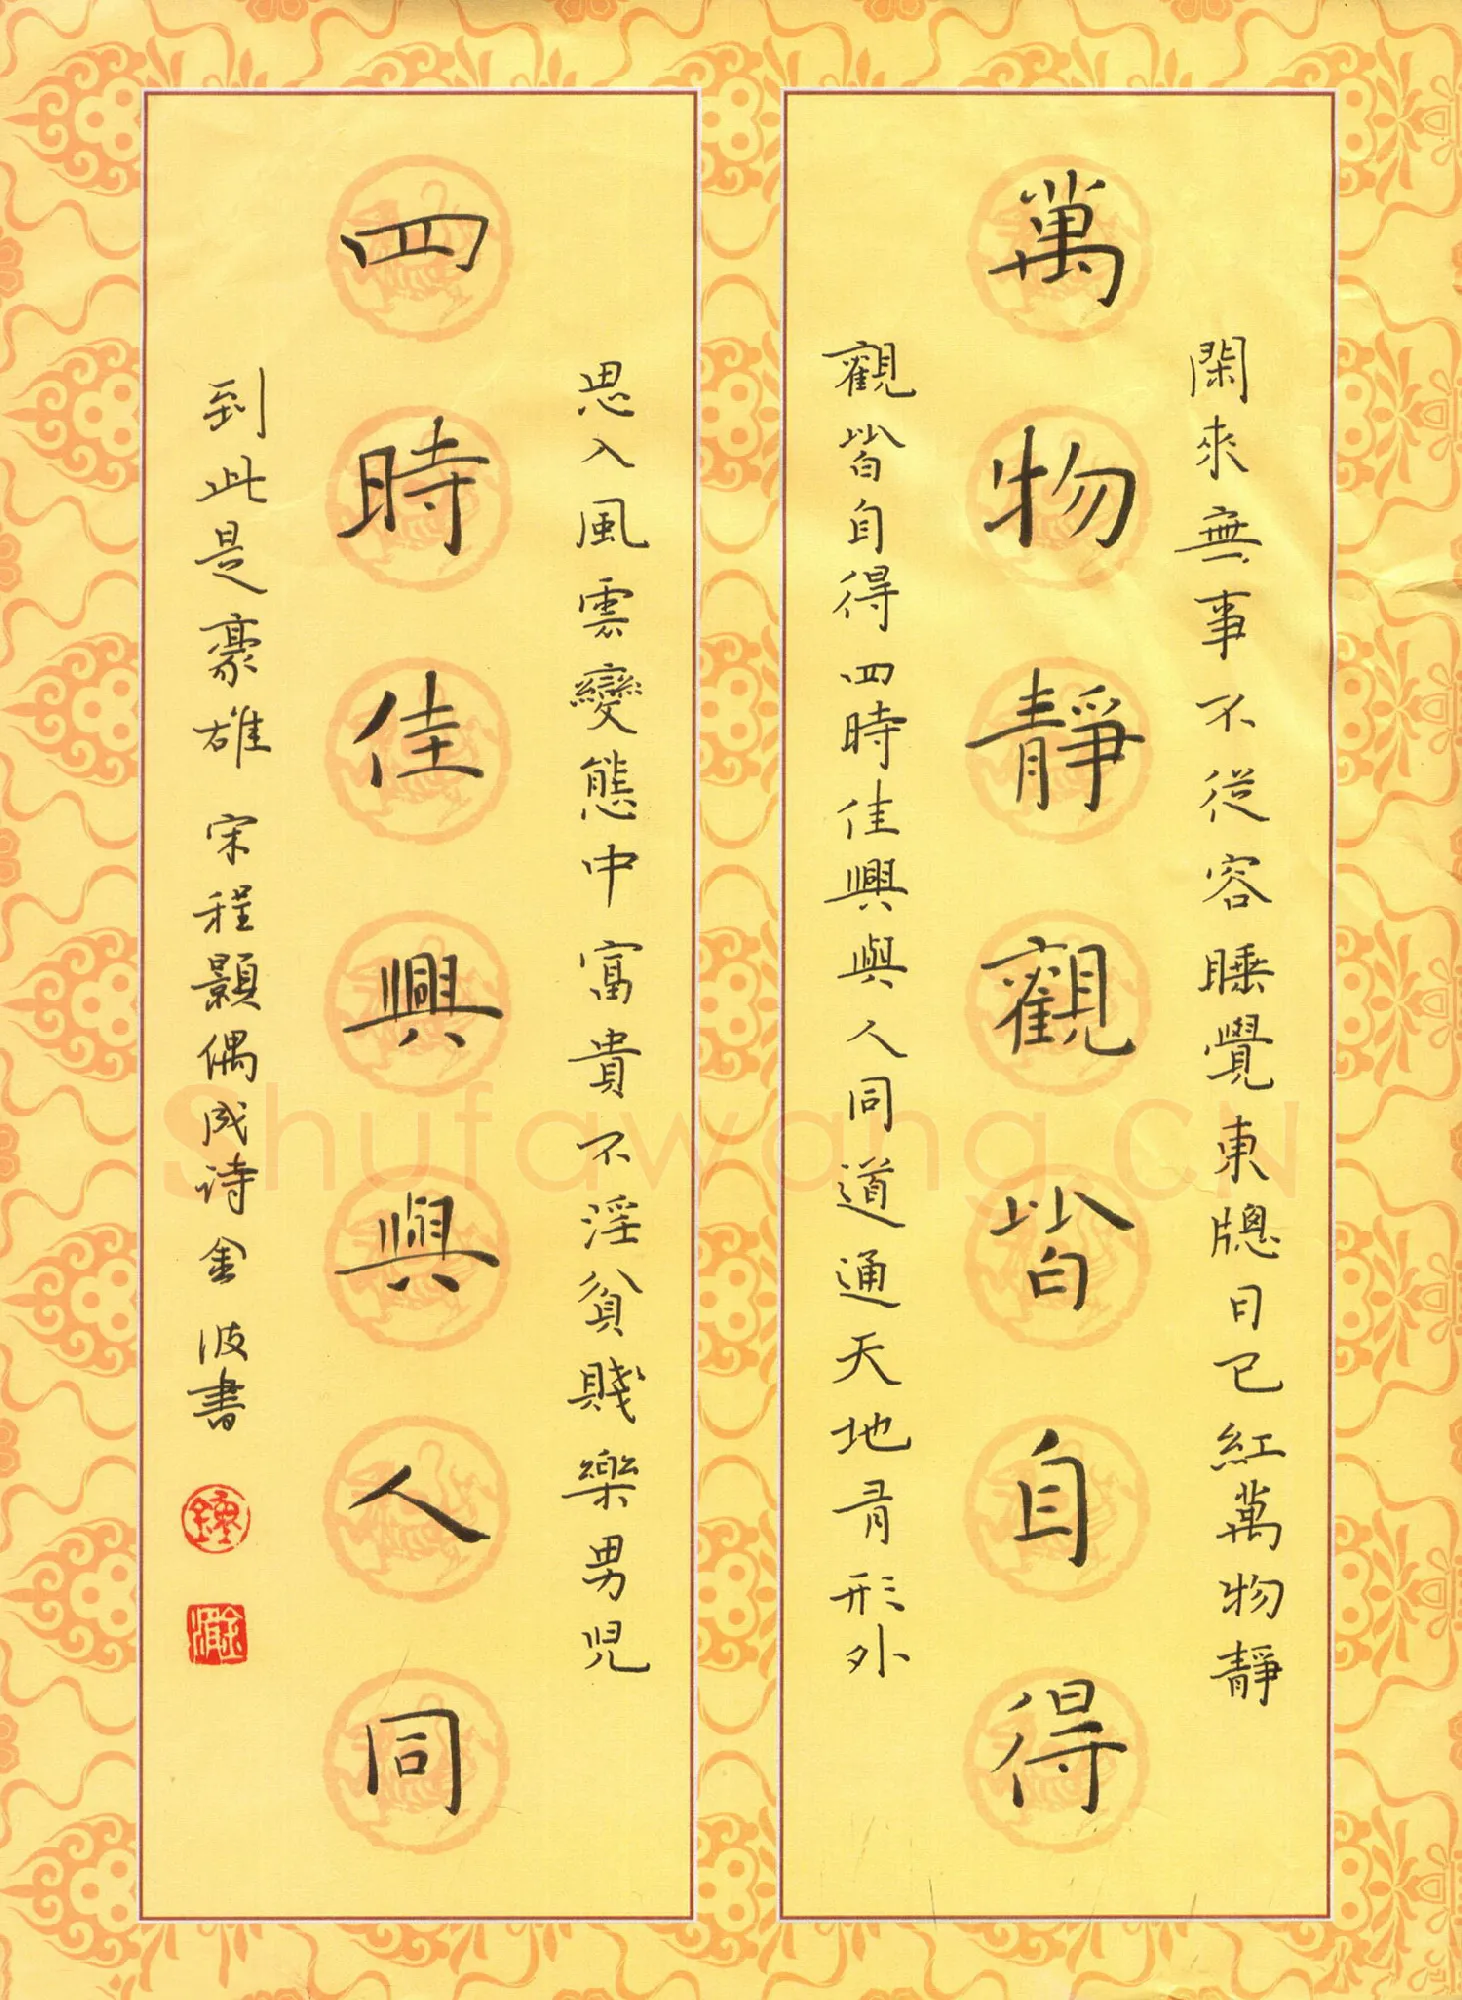 萬物靜觀皆自得
四時佳興與人同
閑來無事不從容睡覺東牕日已紅萬物靜
觀皆自得四時佳興與人同道通天地有形外
思入風雲變態中富貴不淫貧賤樂男兒
到此是豪雄 宋程顥偶成诗金波書
Shufawang.CN